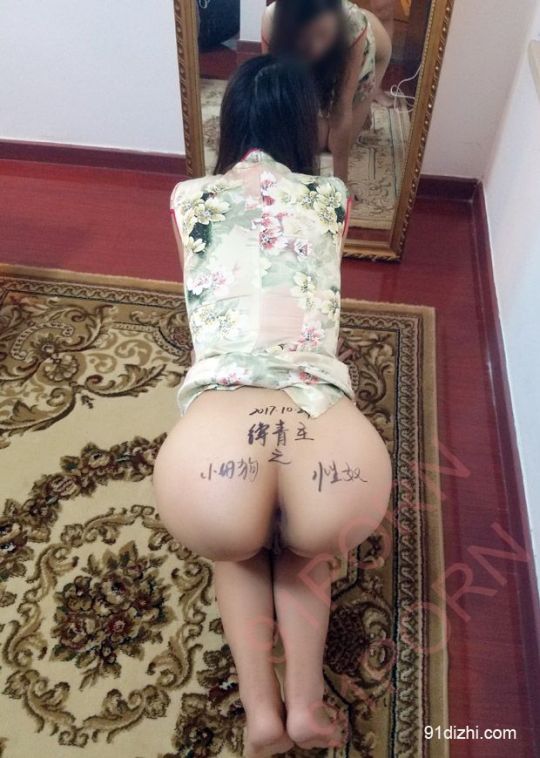 2017.10.2
绮青主
之
小母狗 性奴
91PORN
91PORN
91dizhi.com